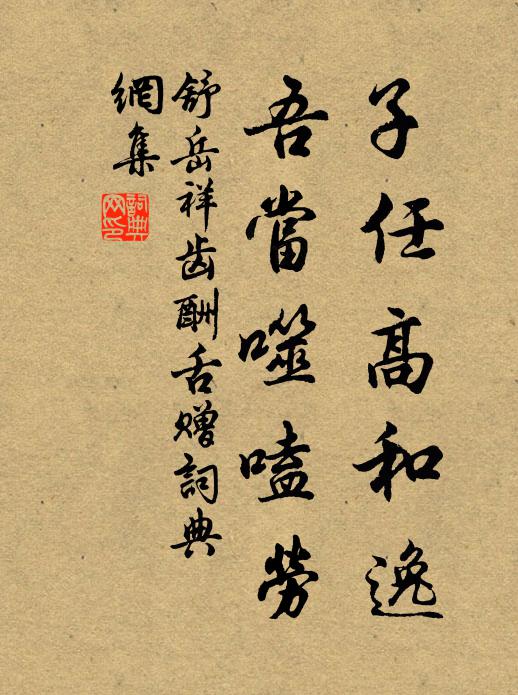 子任高和逸
吾當噬嗑勞
舒岳祥齿酬舌赠詞典
網集
詞典
网印